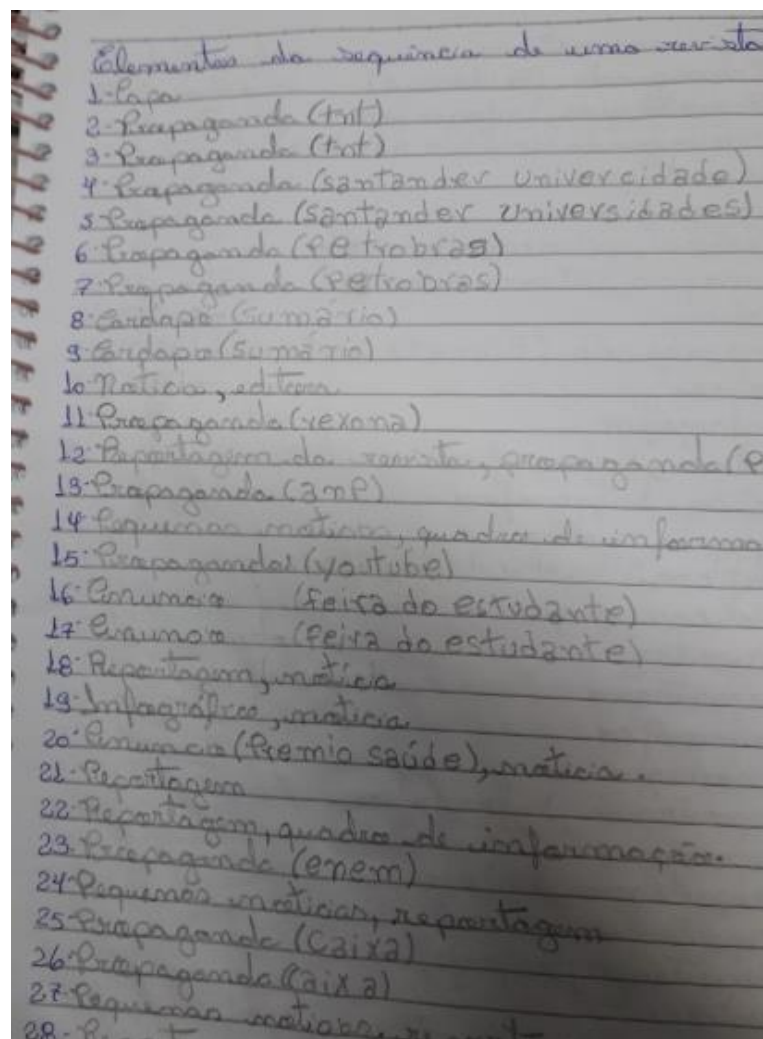 Elementos da sequência de uma revista
1-Capa
2-Propaganda (tnt)
3-Propaganda (tnt)
4-Propaganda (santander univercidade)
5-Propaganda (santander universidades)
6-Propaganda (Petrobras)
7-Propaganda (Petrobras)
8-Cardapo (sumário)
9-Cardapo (sumário)
10-Noticia, editora
11-Propaganda (rexona)
12-Reportagem da revista, propaganda (P
13-Propaganda (anp)
14-Pequenas noticias, quadro de informa
15-Propagandas (youtube)
16-Anuncio (feira do estudante)
17-Anuncio (feira do estudante)
18-Reportagem, noticia
19-Infografico, noticia
20-Anuncio (Premio saúde), noticia.
21-Reportagem
22-Reportagem, quadro de informação.
23-Propaganda (enem)
24-Pequenas noticias, reportagem
25-Propaganda (Caixa)
26-Propaganda (Caixa)
27-Pequenas noticias,
28-